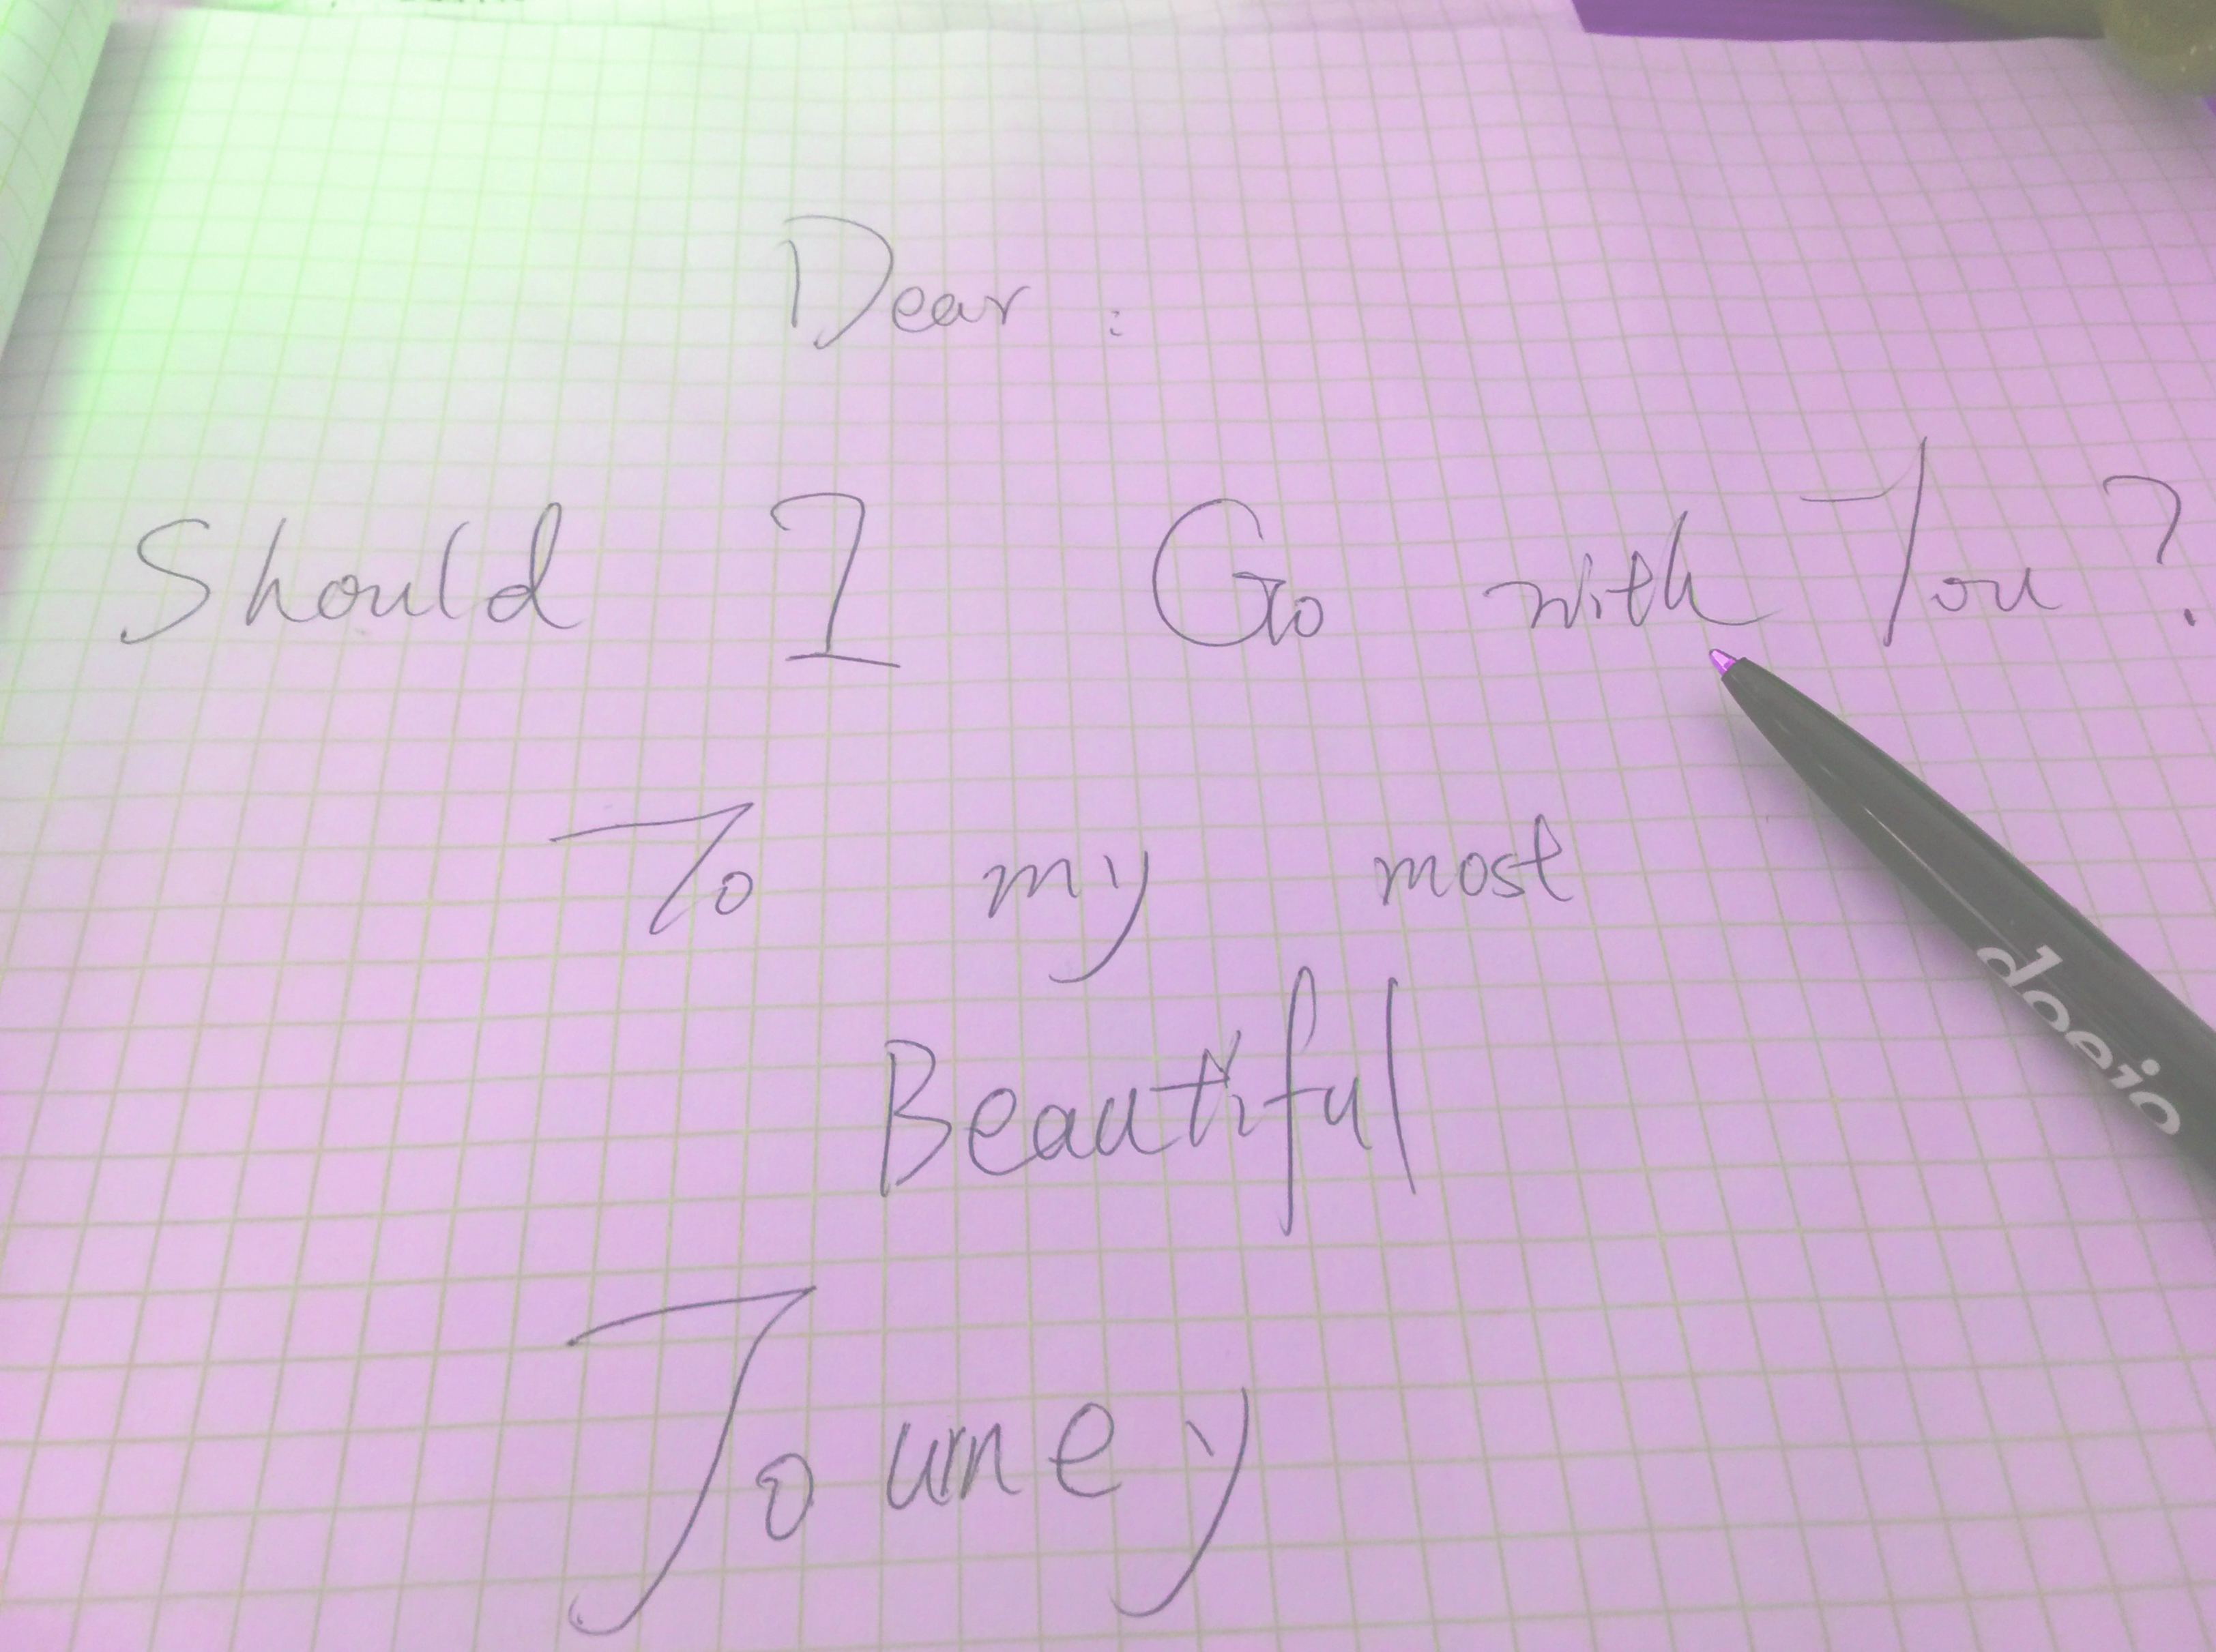 Dear :
Should I Go with You?
To my most
Beautiful
Journey
doeio